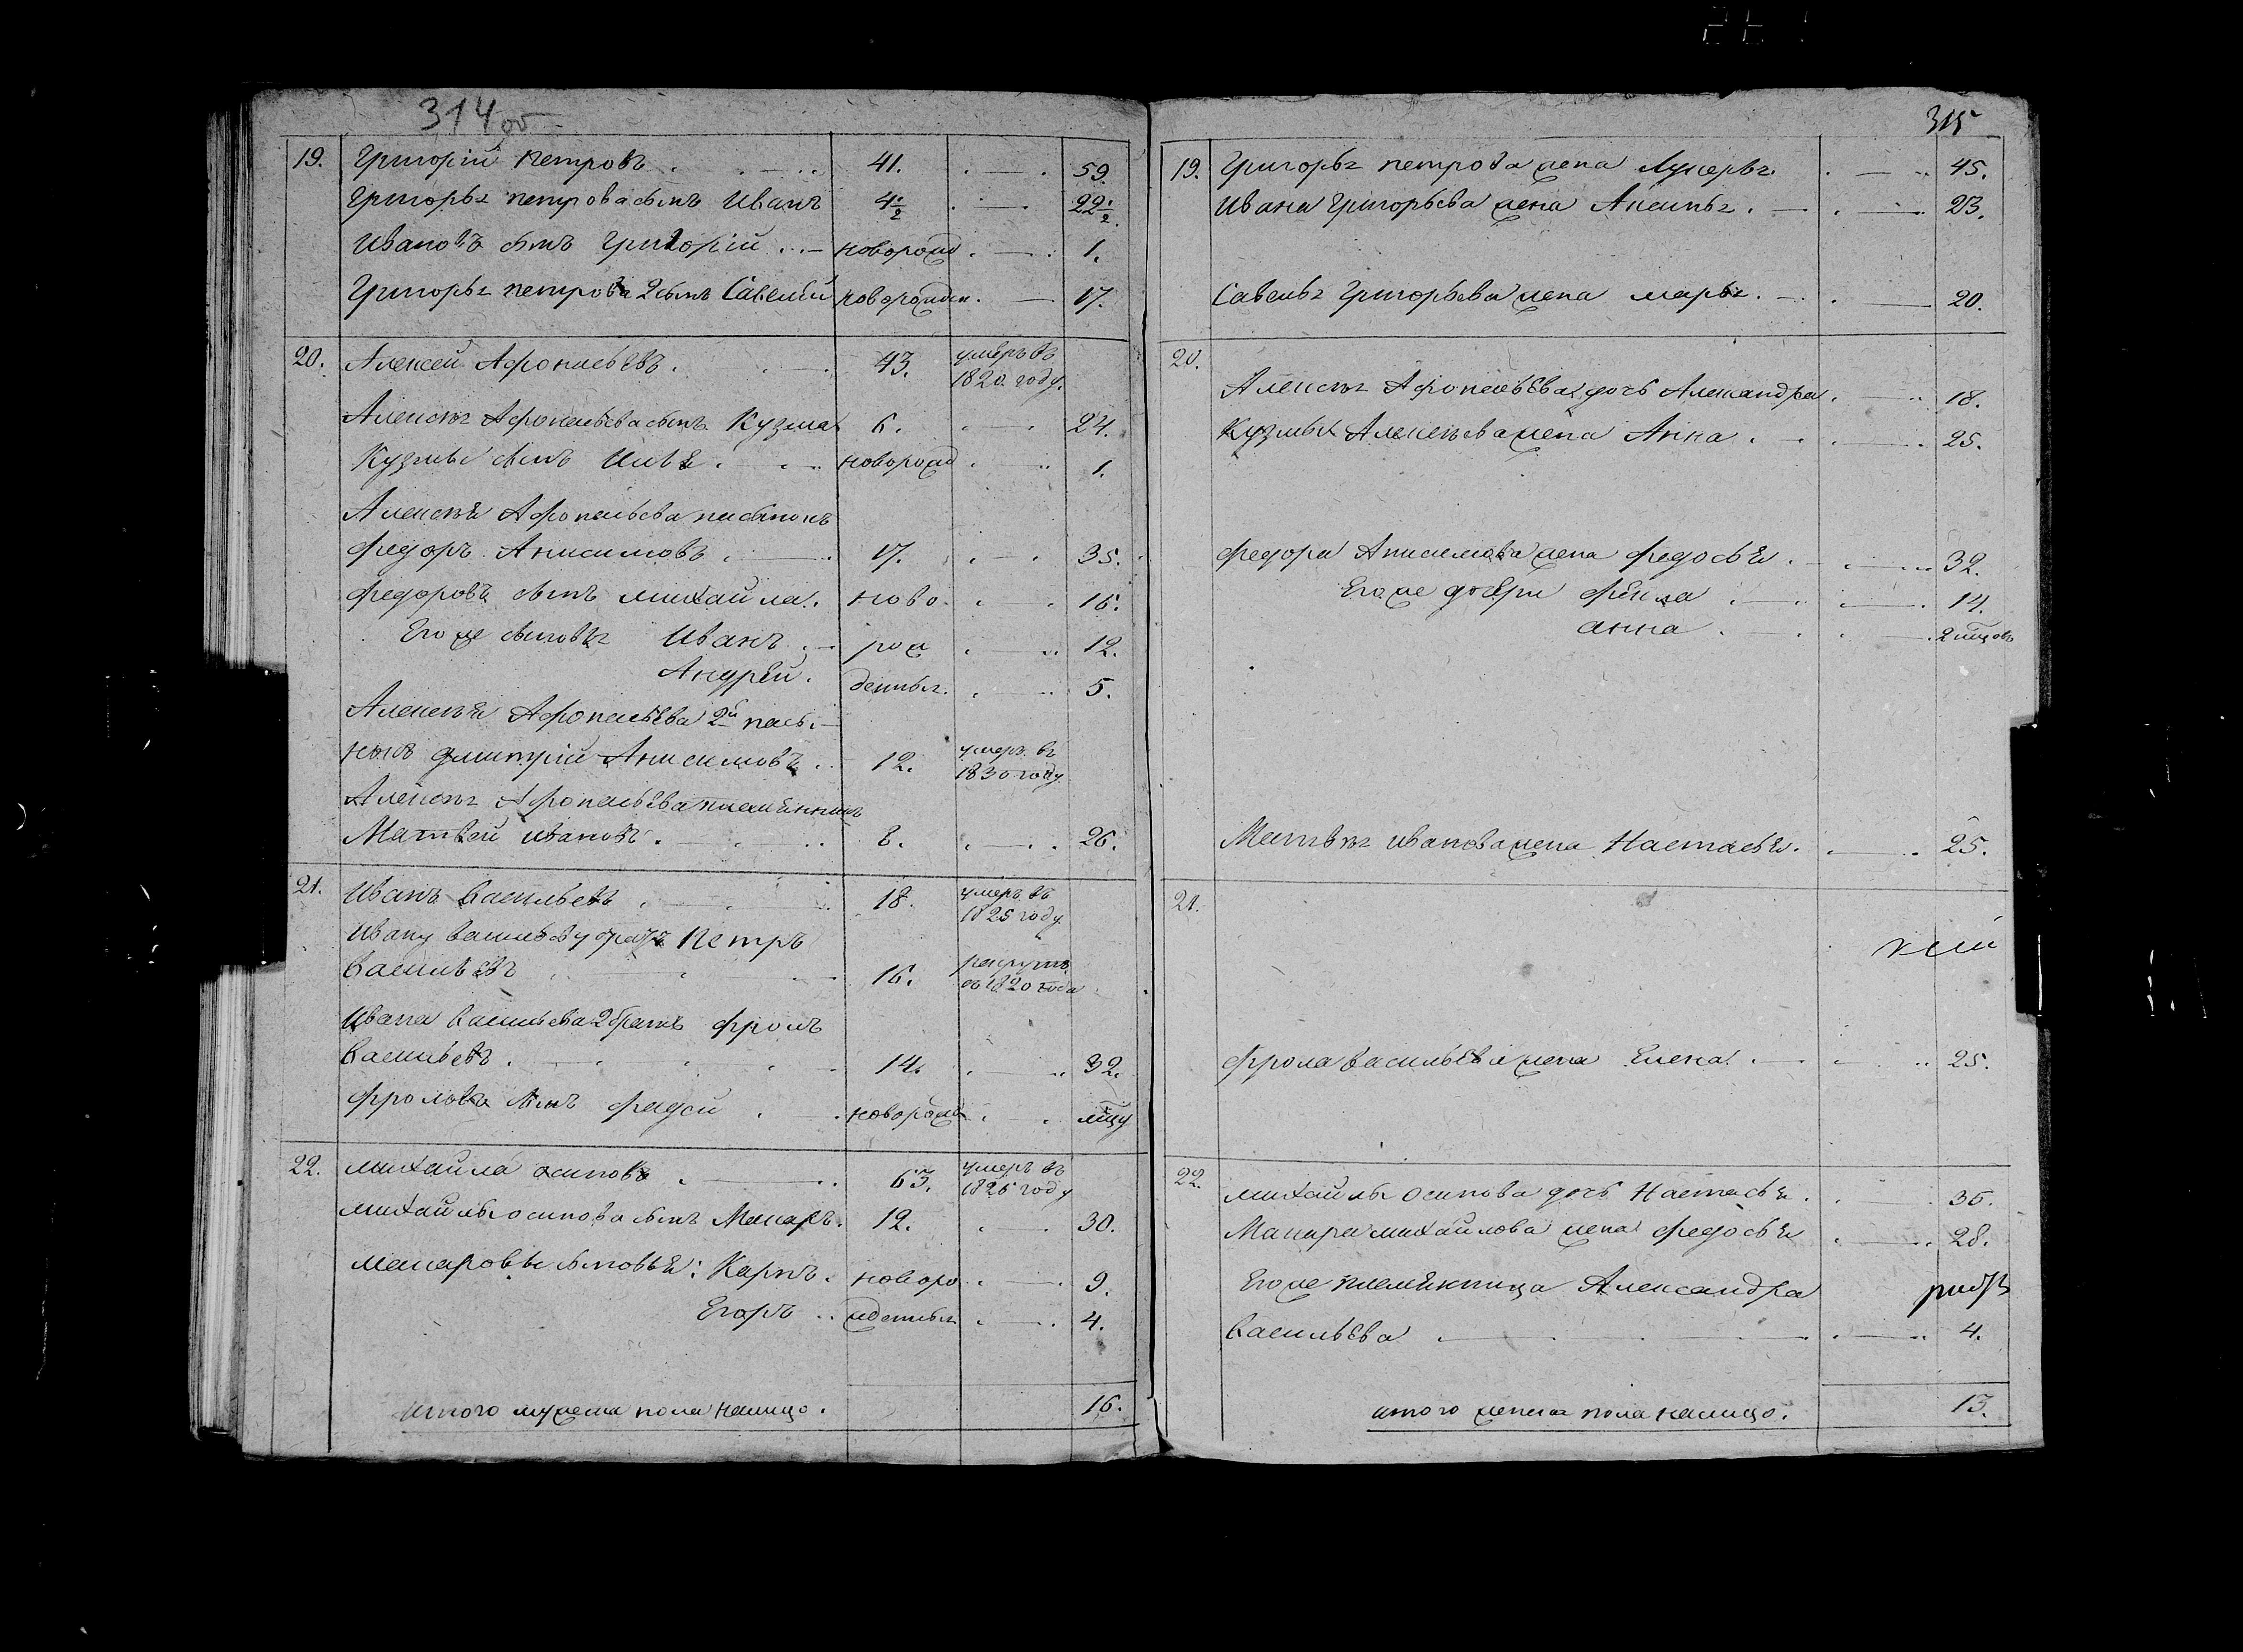 314 об
19. Григорій Петровъ . 41. 59.
Григорья Петрова сынъ Иванъ 4 1/2 22 1/2.
Ивановъ сынъ Григорій новорожд 1.
Григорья Петрова 2 сынъ Савелий новорожден. 17.
20. Алексей Афонасьевъ. 43. умеръ въ
1820 году.
Алексѣя Афонасьева сынъ Кузма 6. 24.
Кузмы сынъ новорожд 1.
Алексѣя Афонасьева пасынокъ
Федоръ Анисимовъ. 17. 35.
Федоровъ сынъ Михайла. ново 16.
Его же сыновья Иванъ рож 12.
Андрей. денныя. 5.
Алексѣя Афонасьева 2й пасы-
нокъ Дмитрій Анисимовъ. 12. умеръ въ
1830 году
Алексѣя Афонасьева племянникъ
Матвей Ивановъ. 8. 26.
21. Иванъ Васильевъ 18. умеръ въ
1825 году
Ивану Васильеву братъ Петръ
Васильевъ 16. рекрутъ
съ 1820 года
Ивана Васильева 2 братъ Фролъ
Васильевъ. 14. 32.
Фролова сынъ новорожд мцу
22. Михайла Осиповъ 63. умеръ въ
1826 году
Михайлы Осипова сынъ Макаръ. 12. 30.
Макаровы сыновья: Карпъ. новоро 9.
Егоръ жденныя 4.
итого мужеска пола налицо. 16.
315
19. Григорья Петрова жена Лукерья. 45.
Ивана Григорьева жена Аксинья. 23.
Савелья Григорьева жена Марья. 20.
20.
Алексѣя Афонасьева дочь Александра. 18.
Кузмы Алексѣева жена Анна. 25.
Федора Анисимова жена Федосья. 32.
Его же дочери Фекла 14.
Анна 2 мцовъ
Матвѣя Иванова жена Настасья. 25.
21.
Фрола Васильева жена Елена. 25.
22.
Михайлы Осипова дочь Настасья. 35.
Макара Михайлова жена Федосья 28.
Его же племянница Александра
Васильева 4.
итого женска пола налицо. 13.